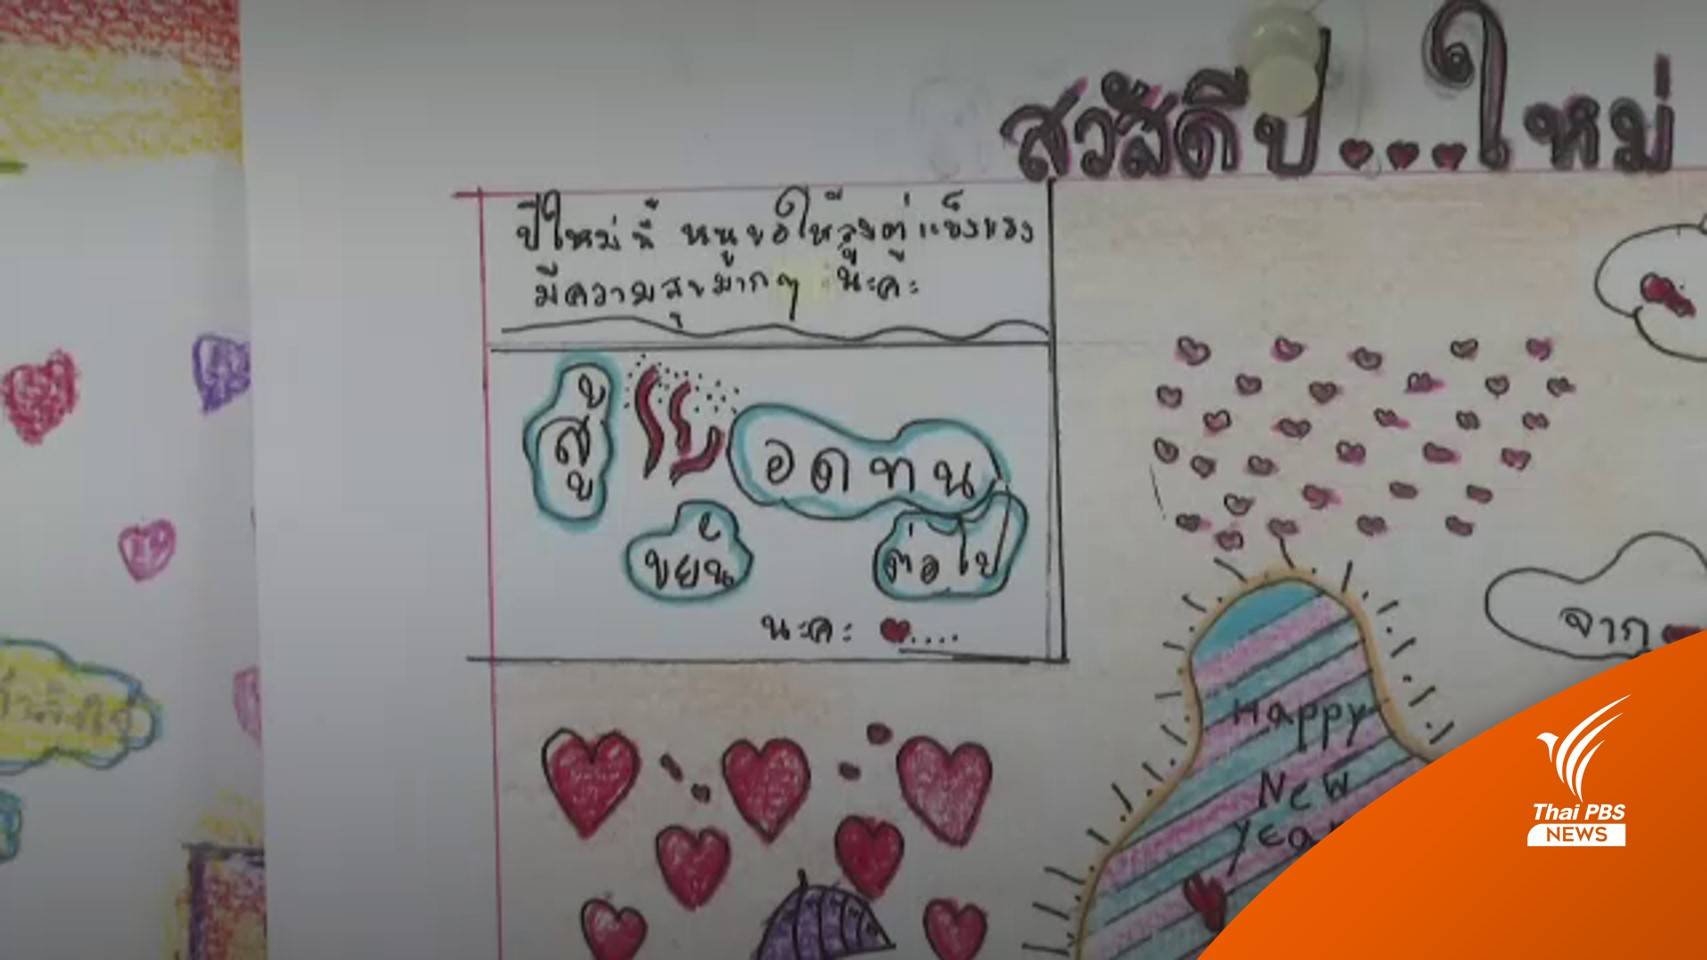 สวัสดีปี...ใหม่
ปีใหม่นี้ หนูขอให้ลุงตู่แข็งแรง
มีความสุขมากๆ นะคะ
สู้ๆ
อดทน
ขยัน
ต่อไป
นะคะ ....
จาก
Happy
New
Year
Thai PBS
NEWS